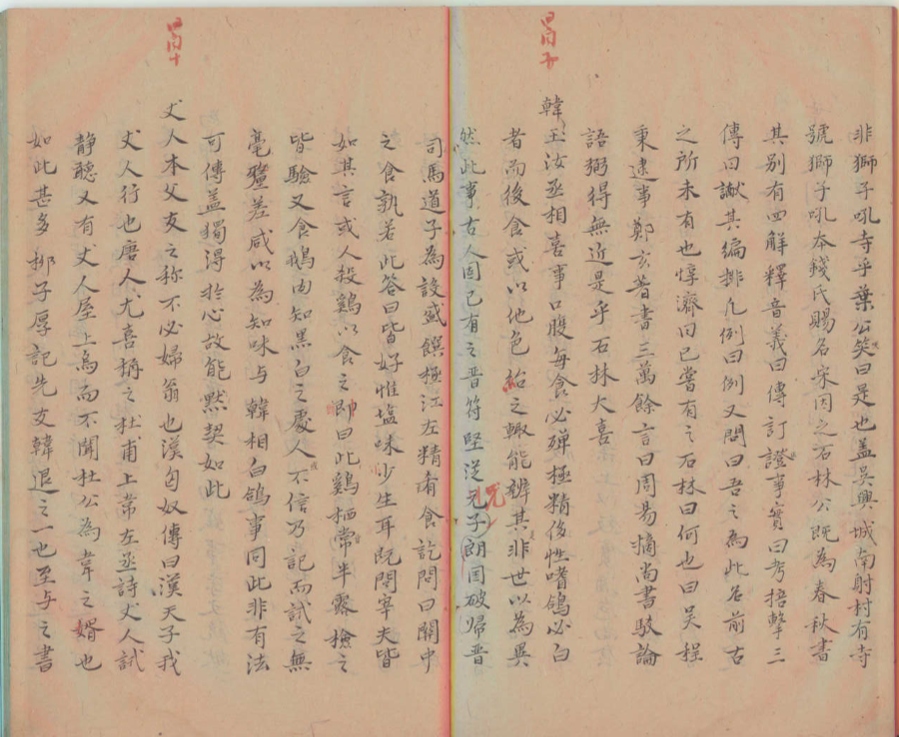 非獅子吼寺乎葉公笑曰是也蓋吳興城南射村有寺
號獅子吼本錢氏賜名宋因之石林公既為春秋書
其别有四解釋音義曰傳訂證事實曰考掊擊三
傳曰讞其編排凡例曰例又問曰吾之為此名前古
之所未有也惇濟曰已嘗有之石林曰何也曰吳程
秉逮事鄭玄著書三萬餘言曰周易摘尚書駁論
語弼得無近是乎石林大喜
韓玉汝丞相喜事口腹每食必殫極精侈性嗜鴿必白
者而後食或以他色紿之輙能辨其非世以為異
然此事古人固已有之晋符堅從兄子朗國破歸晋
司馬道子為設盛饌極江左精肴食訖問曰關中
之食孰若此答曰皆好惟塩味少生耳既問宰夫皆
如其言或人殺鷄以食之即曰此鷄栖常半露檢之
皆驗又食鵝肉知黑白之處人不信乃記而試之無
毫釐差咸以為知味与韓相白鴿事同此非有法
可傳盖獨得於心故能黙契如此
丈人本父友之称不必婦翁也漢匈奴傳曰漢天子我
丈人行也唐人尤喜稱之杜甫上常左丞詩丈人試
静聽又有丈人屋上烏而不聞杜公為韋之婿也
如此甚多栁子厚記先友韓退之一也至与之書